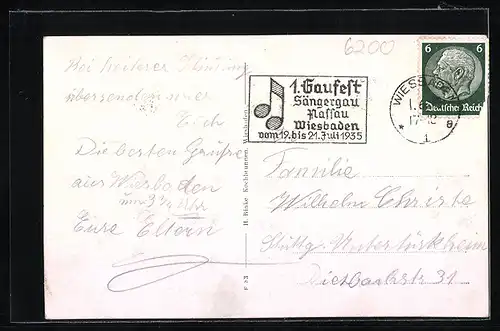 6200
Bei heiterer Stimmung
übersenden wir
Euch
Die besten Grüße
aus Wiesbaden
Eure Eltern
1. Gaufest
Sängergau
Nassau
Wiesbaden
vom 19. bis 21. Juli 1935
WIESBADEN
1.6
17-18
* 1 a
6 6
Deutsches Reich
H. Rinke, Kochbrunnen, Wiesbaden
F 83
Familie
Wilhelm Christe
Stuttg.-Untertürkheim
Diesbachstr 31